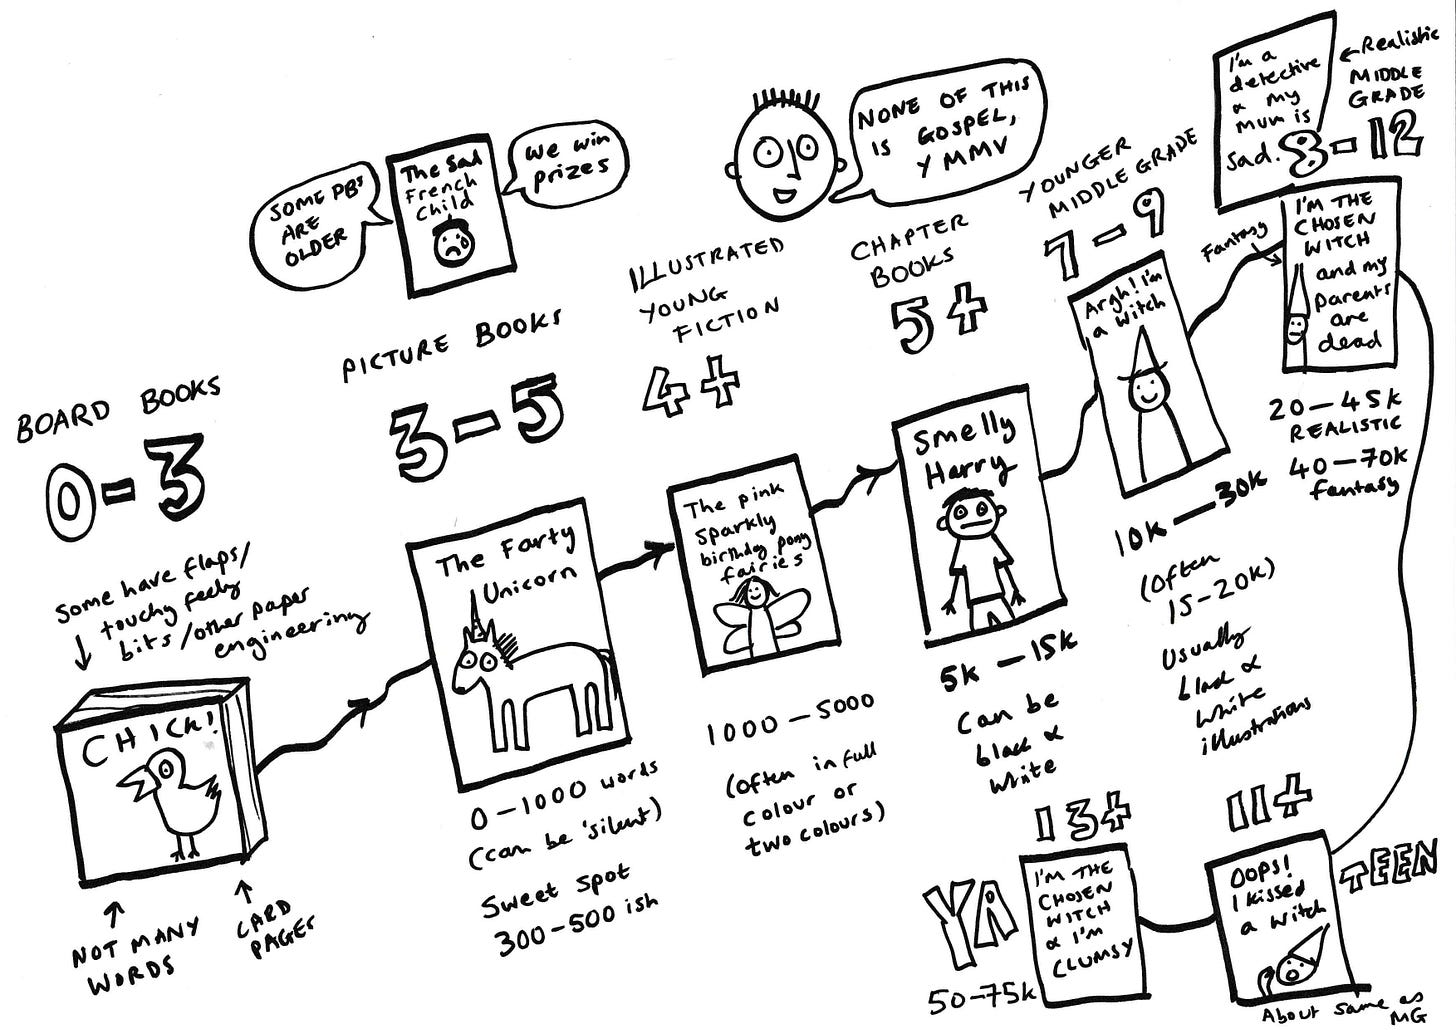 BOARD BOOKS
0-3
Some have flaps/
touchy feely
bits/other paper
engineering
CHICK!
NOT MANY
WORDS
CARD
PAGES
SOME PB'S
ARE
OLDER
The Sad
French
Child
We win
prizes
PICTURE BOOKS
3-5
The Farty
Unicorn
0-1000 words
(can be 'silent')
Sweet spot
300-500 ish
ILLUSTRATED
YOUNG
FICTION
4+
The pink
sparkly
birthday pony
fairies
1000-5000
(often in full
colour or
two colours)
NONE OF THIS
IS GOSPEL,
YMMV
CHAPTER
BOOKS
5+
Smelly
Harry
5K-15K
Can be
black &
white
YOUNGER
MIDDLE GRADE
7-9
Argh! I'm
a witch
10K-30K
(often
15-20K)
Usually
black &
white
illustrations
I'm a
detective
& my
mum is
sad.
Realistic
MIDDLE
GRADE
8-12
Fantasy
I'M THE
CHOSEN
WITCH
and my
parents
are
dead
20-45K
REALISTIC
40-70K
fantasy
11+
TEEN
OOPS!
I kissed
a witch
About same as
MG
13+
YA
I'M THE
CHOSEN
WITCH
& I'M
CLUMSY
50-75K